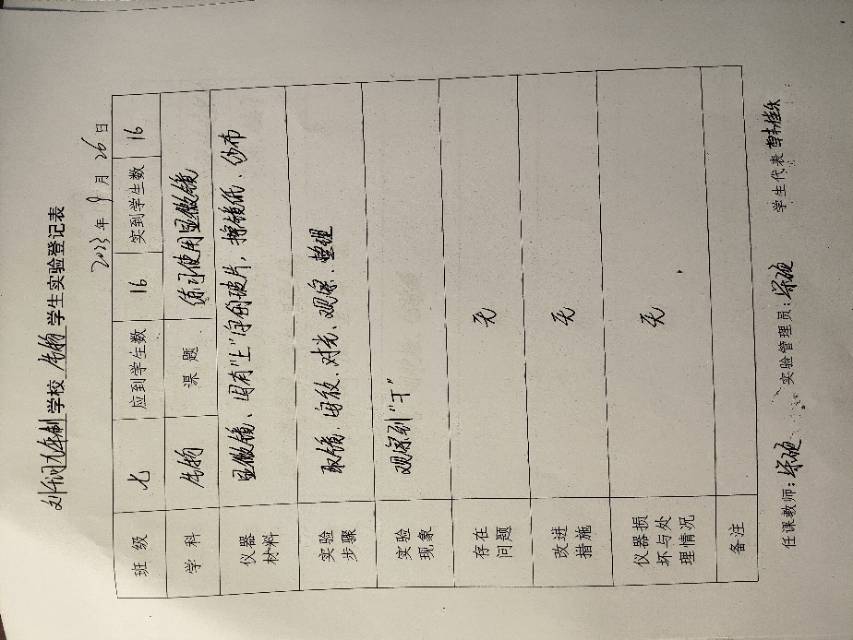 九年制学校 生物 学生实验登记表
2023年9月26日
班级 七 应到学生数 16 实到学生数 16
学科 生物 课题 练习使用显微镜
仪器材料 显微镜、写有"上"字的玻片，擦镜纸、纱布
实验步骤 取镜、安放、对光、观察、整理
实验现象 观察到"丅"
存在问题 无
改进措施 无
仪器损坏与处理情况 无
备注
任课教师： 实验管理员： 学生代表